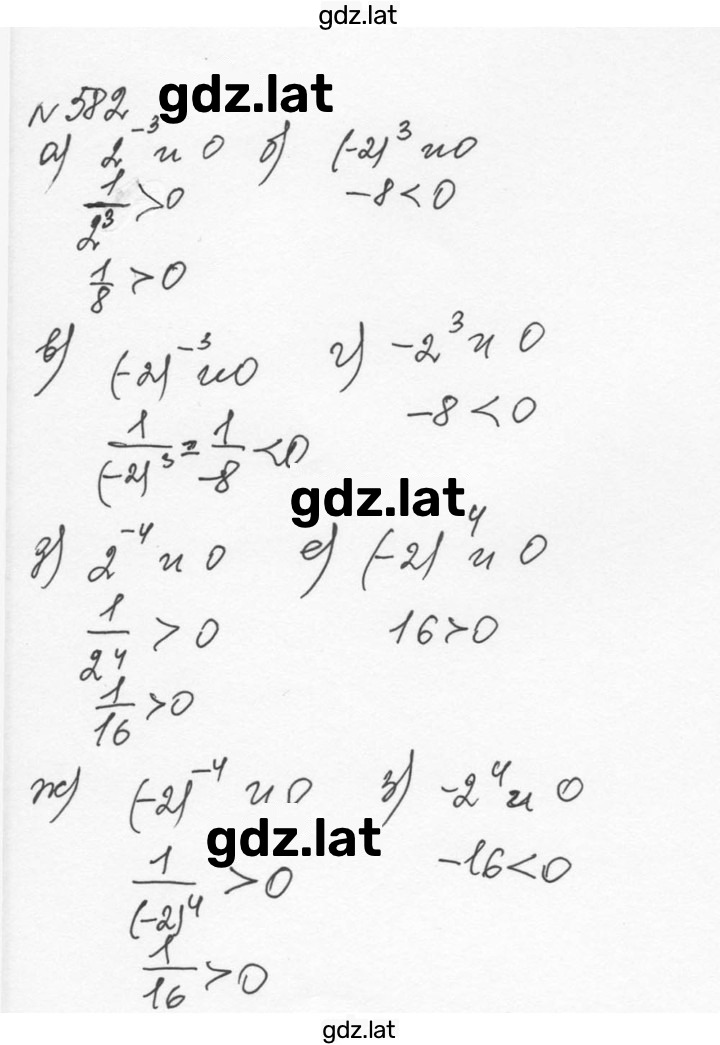 gdz.lat
N 582 gdz.lat
а) 2^-3 и 0 б) (-2)^3 и 0
1/2^3 > 0 -8 < 0
1/8 > 0
в) (-2)^-3 и 0 г) -2^3 и 0
1/(-2)^3 = 1/-8 < 0 -8 < 0
gdz.lat
д) 2^-4 и 0 е) (-2)^4 и 0
1/2^4 > 0 16 > 0
1/16 > 0
ж) (-2)^-4 и 0 з) -2^4 и 0
gdz.lat
1/(-2)^4 > 0 -16 < 0
1/16 > 0
gdz.lat